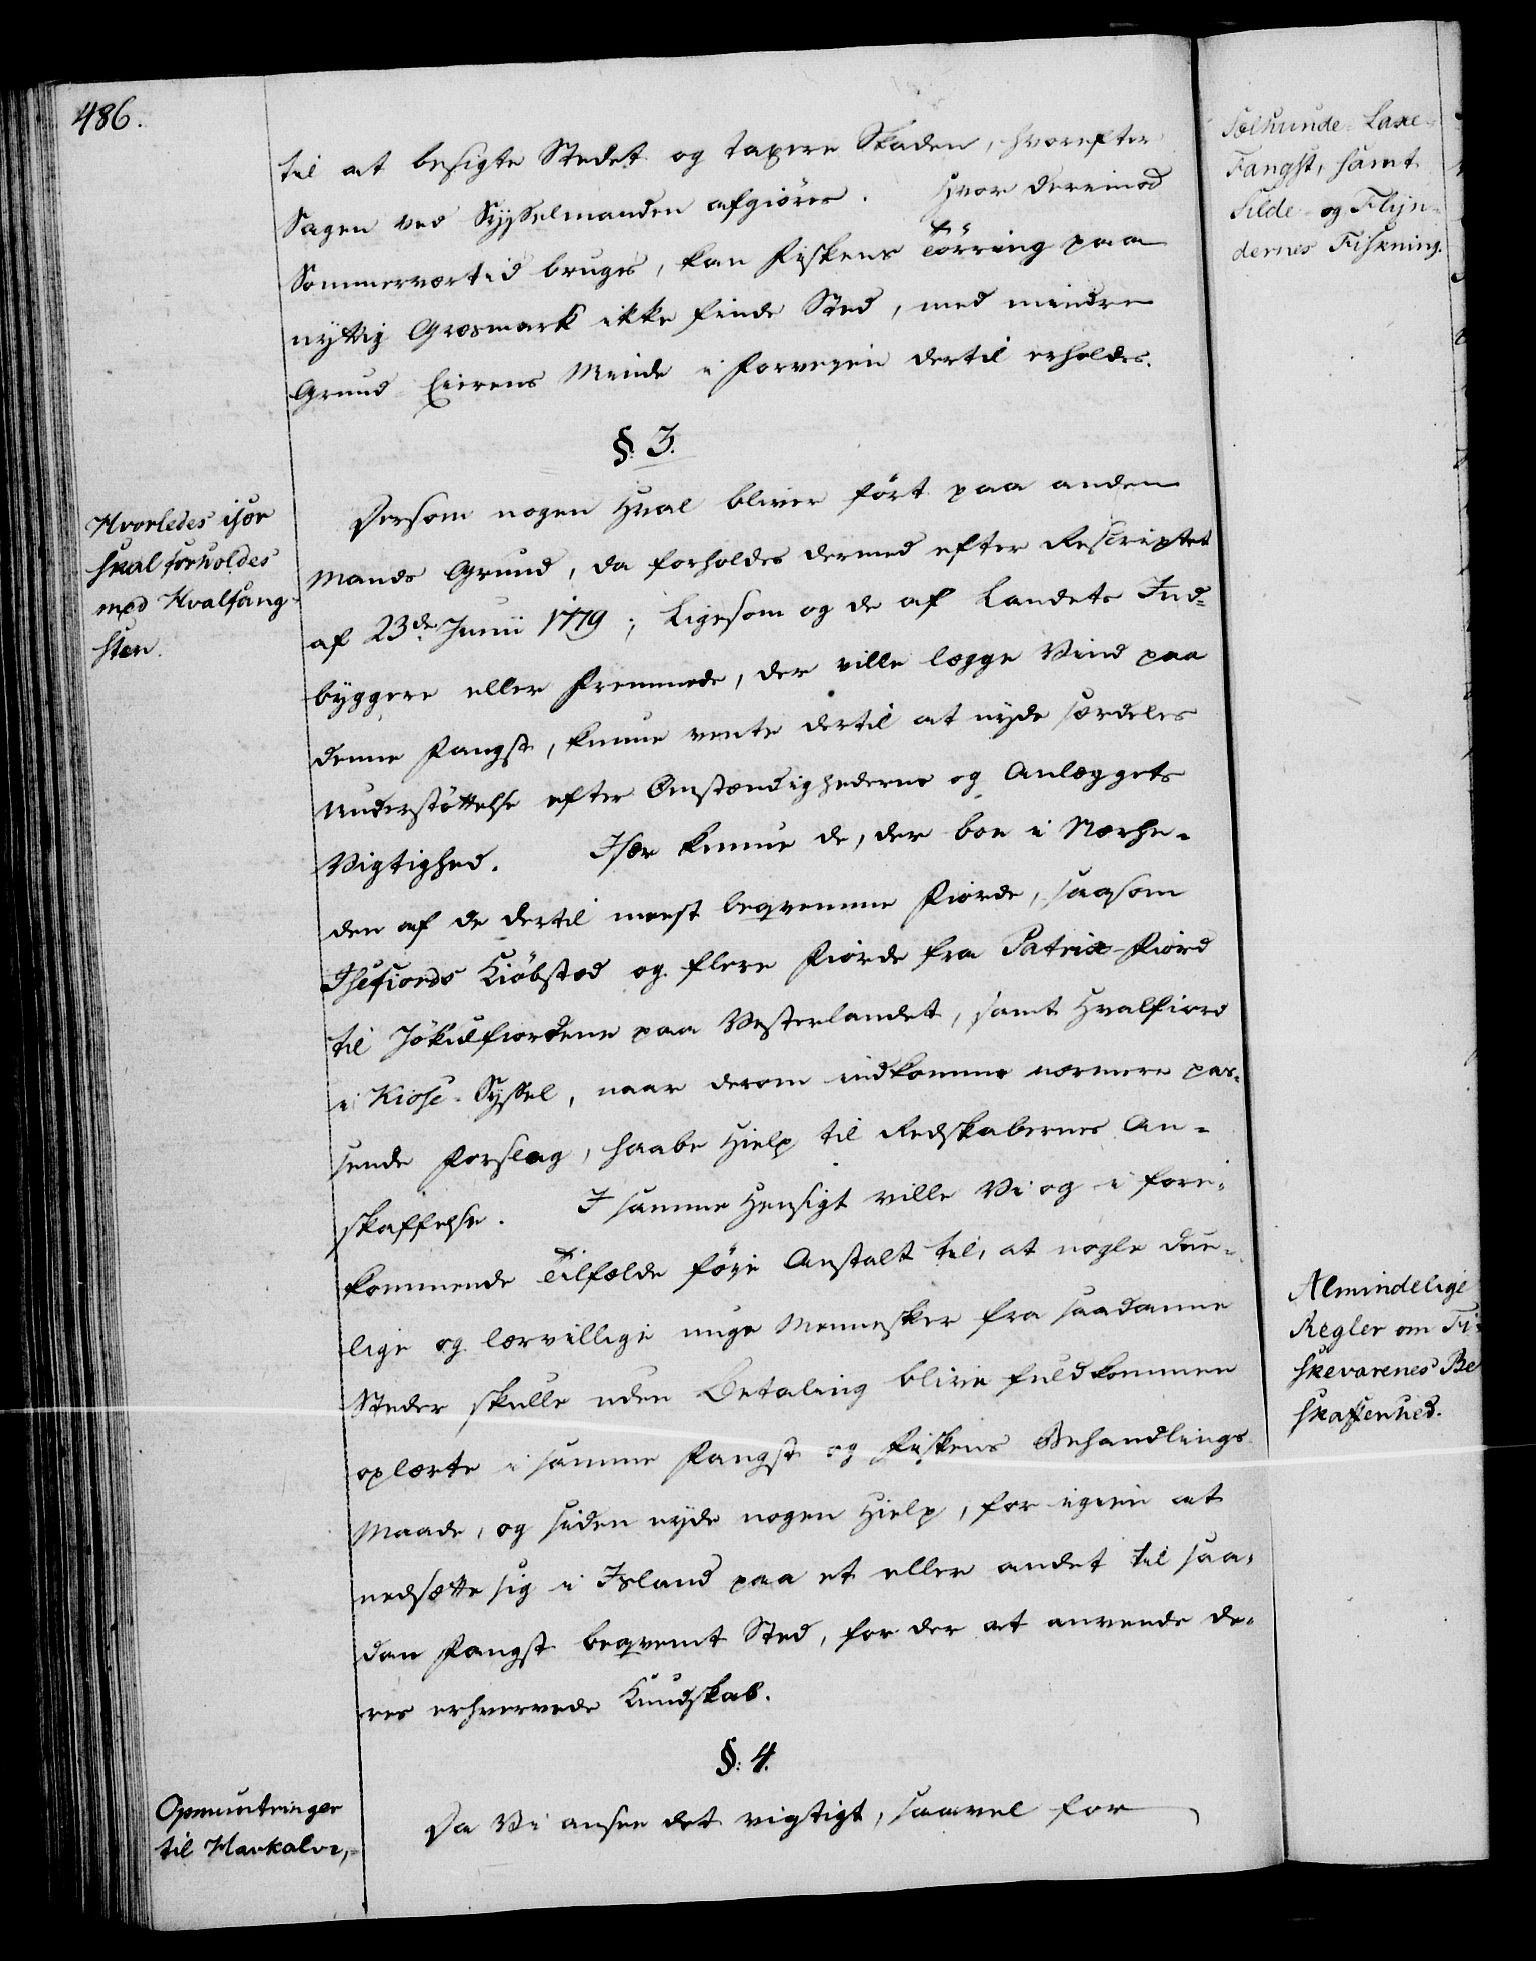 486.
til at besigte Stedet og taxere Skaden, hvorefter
Sagen ved Sysselmanden afgiöres. Hvor derimod
Sommervertid bruges, kan Fiskens Törring paa
nyttig Græsmark ikke finde Sted, med mindre
Grund-Eierens Minde i Forveyen dertil erholdes.
§. 3.
Hvorledes især
skal forholdes
med Hvalfang-
sten.
Dersom nogen Hval bliver fört paa anden
Mands Grund, da forholdes dermed efter Rescriptet
af 23de Junii 1779; Ligesom og de af Landets Ind-
byggere eller Fremmede, der ville lægge Vind paa
denne Fangst, kunne vente dertil at nyde særdeles
Understöttelse efter Omstændighederne og Anlæggets
Vigtighed. Især kunne de, der boe i Nærhe-
den af de dertil meest beqvemme Fiorde, saasom
Isefiords Kiöbsted og flere Fiorde fra Patrix-Fiord
til Jökulfiordene paa Vesterlandet, samt Hvalfiord
i Kiose-Syssel, naar derom indkomme nærmere pas-
sende Forslag, haabe Hielp til Redskabernes An-
skaffelse. I samme Hensigt ville Vi og i fore-
kommende Tilfælde föye Anstalt til, at nogle due-
lige og lærvillige unge Mennesker fra saadanne
Steder skulle uden Betaling blive fuldkommen
oplærte i samme Fangst og Fiskens Behandlings
Maade, og siden nyde nogen Hielp, for igien at
nedsætte sig i Island paa et eller andet til saa-
dan Fangst beqvemt Sted, for der at anvende de-
res erhvervede Kundskab.
§. 4.
Opmuntringer
til Havkalve,-
Da Vi ansee det vigtigt, saavel for
Sælhunde- Laxe-
Fangst, samt
Silde- og Flyn-
dernes Fiskning.
Almindelige
Regler om Fi-
skevarenes Be
skaffenhed.